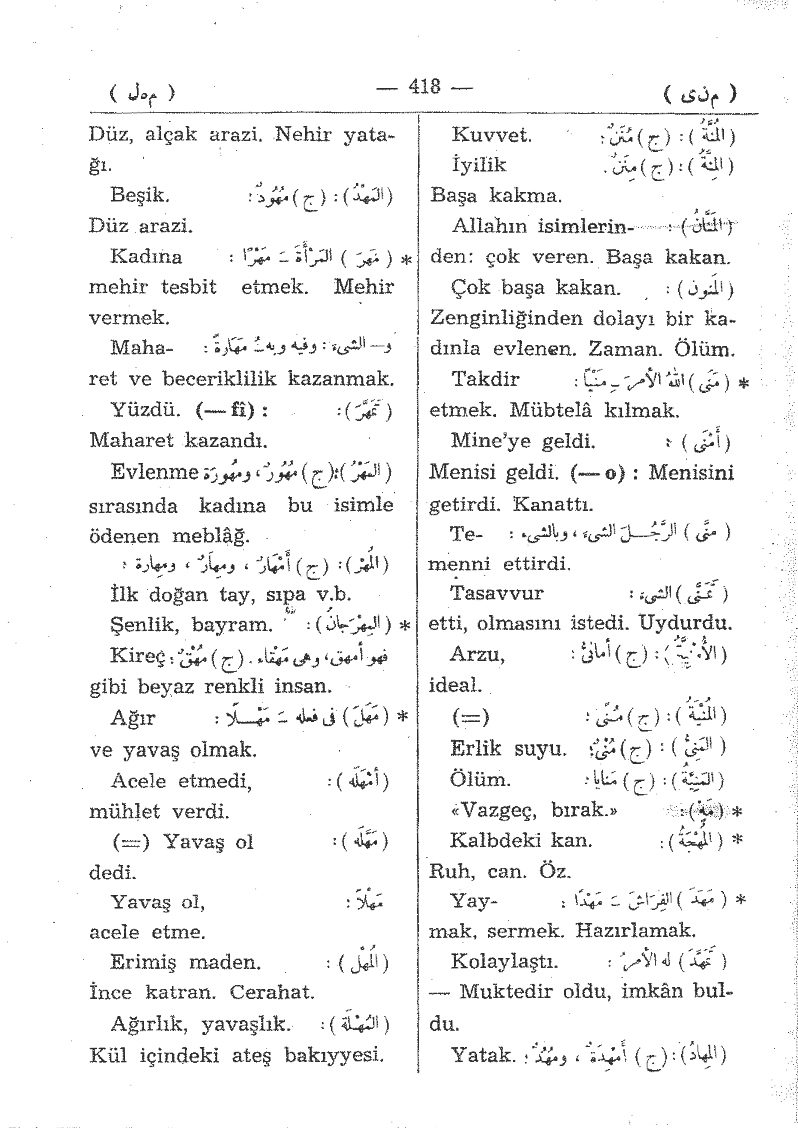 ( م ن ى ) — 418 — ( م ه ل )
(المُنَّةُ) : (ج) مُنَنٌ : Kuvvet.
(المِنَّةُ) : (ج) مِنَنٌ . İyilik
Başa kakma.
(المَنَّانُ) : Allahın isimlerin-
den: çok veren. Başa kakan.
(المَنُون) : Çok başa kakan.
Zenginliğinden dolayı bir ka-
dınla evlenen. Zaman. Ölüm.
* (مَنَى) اللهُ الأمرَ ـِ مَنْيًا : Takdir
etmek. Mübtelâ kılmak.
(أَمْنَى) : Mine'ye geldi.
Menisi geldi. (— o) : Menisini
getirdi. Kanattı.
(مَنَّى) الرَّجُلَ الشىءَ ، وبالشىء : Te-
menni ettirdi.
(تَمَنَّى) الشىءَ : Tasavvur
etti, olmasını istedi. Uydurdu.
(الأُمْنِيَّةُ) : (ج) أمانىُّ : Arzu,
ideal.
(المُنْيَةُ) : (ج) مُنًى : (=)
(المَنِىُّ) : (ج) مُنْىٌ : Erlik suyu.
(المَنِيَّةُ) : (ج) مَنَايَا : Ölüm.
* (مَهْ) : «Vazgeç, bırak.»
* (المُهْجَةُ) : Kalbdeki kan.
Ruh, can. Öz.
* (مَهَدَ) الفِرَاشَ ـَ مَهْدًا : Yay-
mak, sermek. Hazırlamak.
(تَمَهَّدَ) له الأمرُ : Kolaylaştı.
— Muktedir oldu, imkân bul-
du.
(المِهادُ) : (ج) أَمْهِدَةٌ ، ومُهُدٌ : Yatak.
Düz, alçak arazi. Nehir yata-
ğı.
(المَهْدُ) : (ج) مُهُودٌ : Beşik.
Düz arazi.
* (مَهَرَ) المَرْأَةَ ـَ مَهْرًا : Kadına
mehir tesbit etmek. Mehir
vermek.
و— الشىءَ : وفيه وبه ـَ مَهَارَةً : Maha-
ret ve beceriklilik kazanmak.
(تَمَهَّرَ) : Yüzdü. (— fî) :
Maharet kazandı.
(المَهْرُ) : (ج) مُهُورٌ ، ومُهُورَة Evlenme
sırasında kadına bu isimle
ödenen meblâğ.
(المُهْرُ) : (ج) أَمْهَارٌ ، ومِهارٌ ، ومِهارة :
İlk doğan tay, sıpa v.b.
* (المِهْرَجَانُ) : Şenlik, bayram.
فهو أمهق، وهى مَهْقاء . (ج) مُهْقٌ : Kireç
gibi beyaz renkli insan.
* (مَهَلَ) فى فعله ـَ مَهْلًا : Ağır
ve yavaş olmak.
(أَمْهَلَه) : Acele etmedi,
mühlet verdi.
(مَهَّلَه) : (=) Yavaş ol
dedi.
مَهْلًا : Yavaş ol,
acele etme.
(المُهْلُ) : Erimiş maden.
İnce katran. Cerahat.
(المُهْلَةُ) : Ağırlık, yavaşlık.
Kül içindeki ateş bakıyyesi.